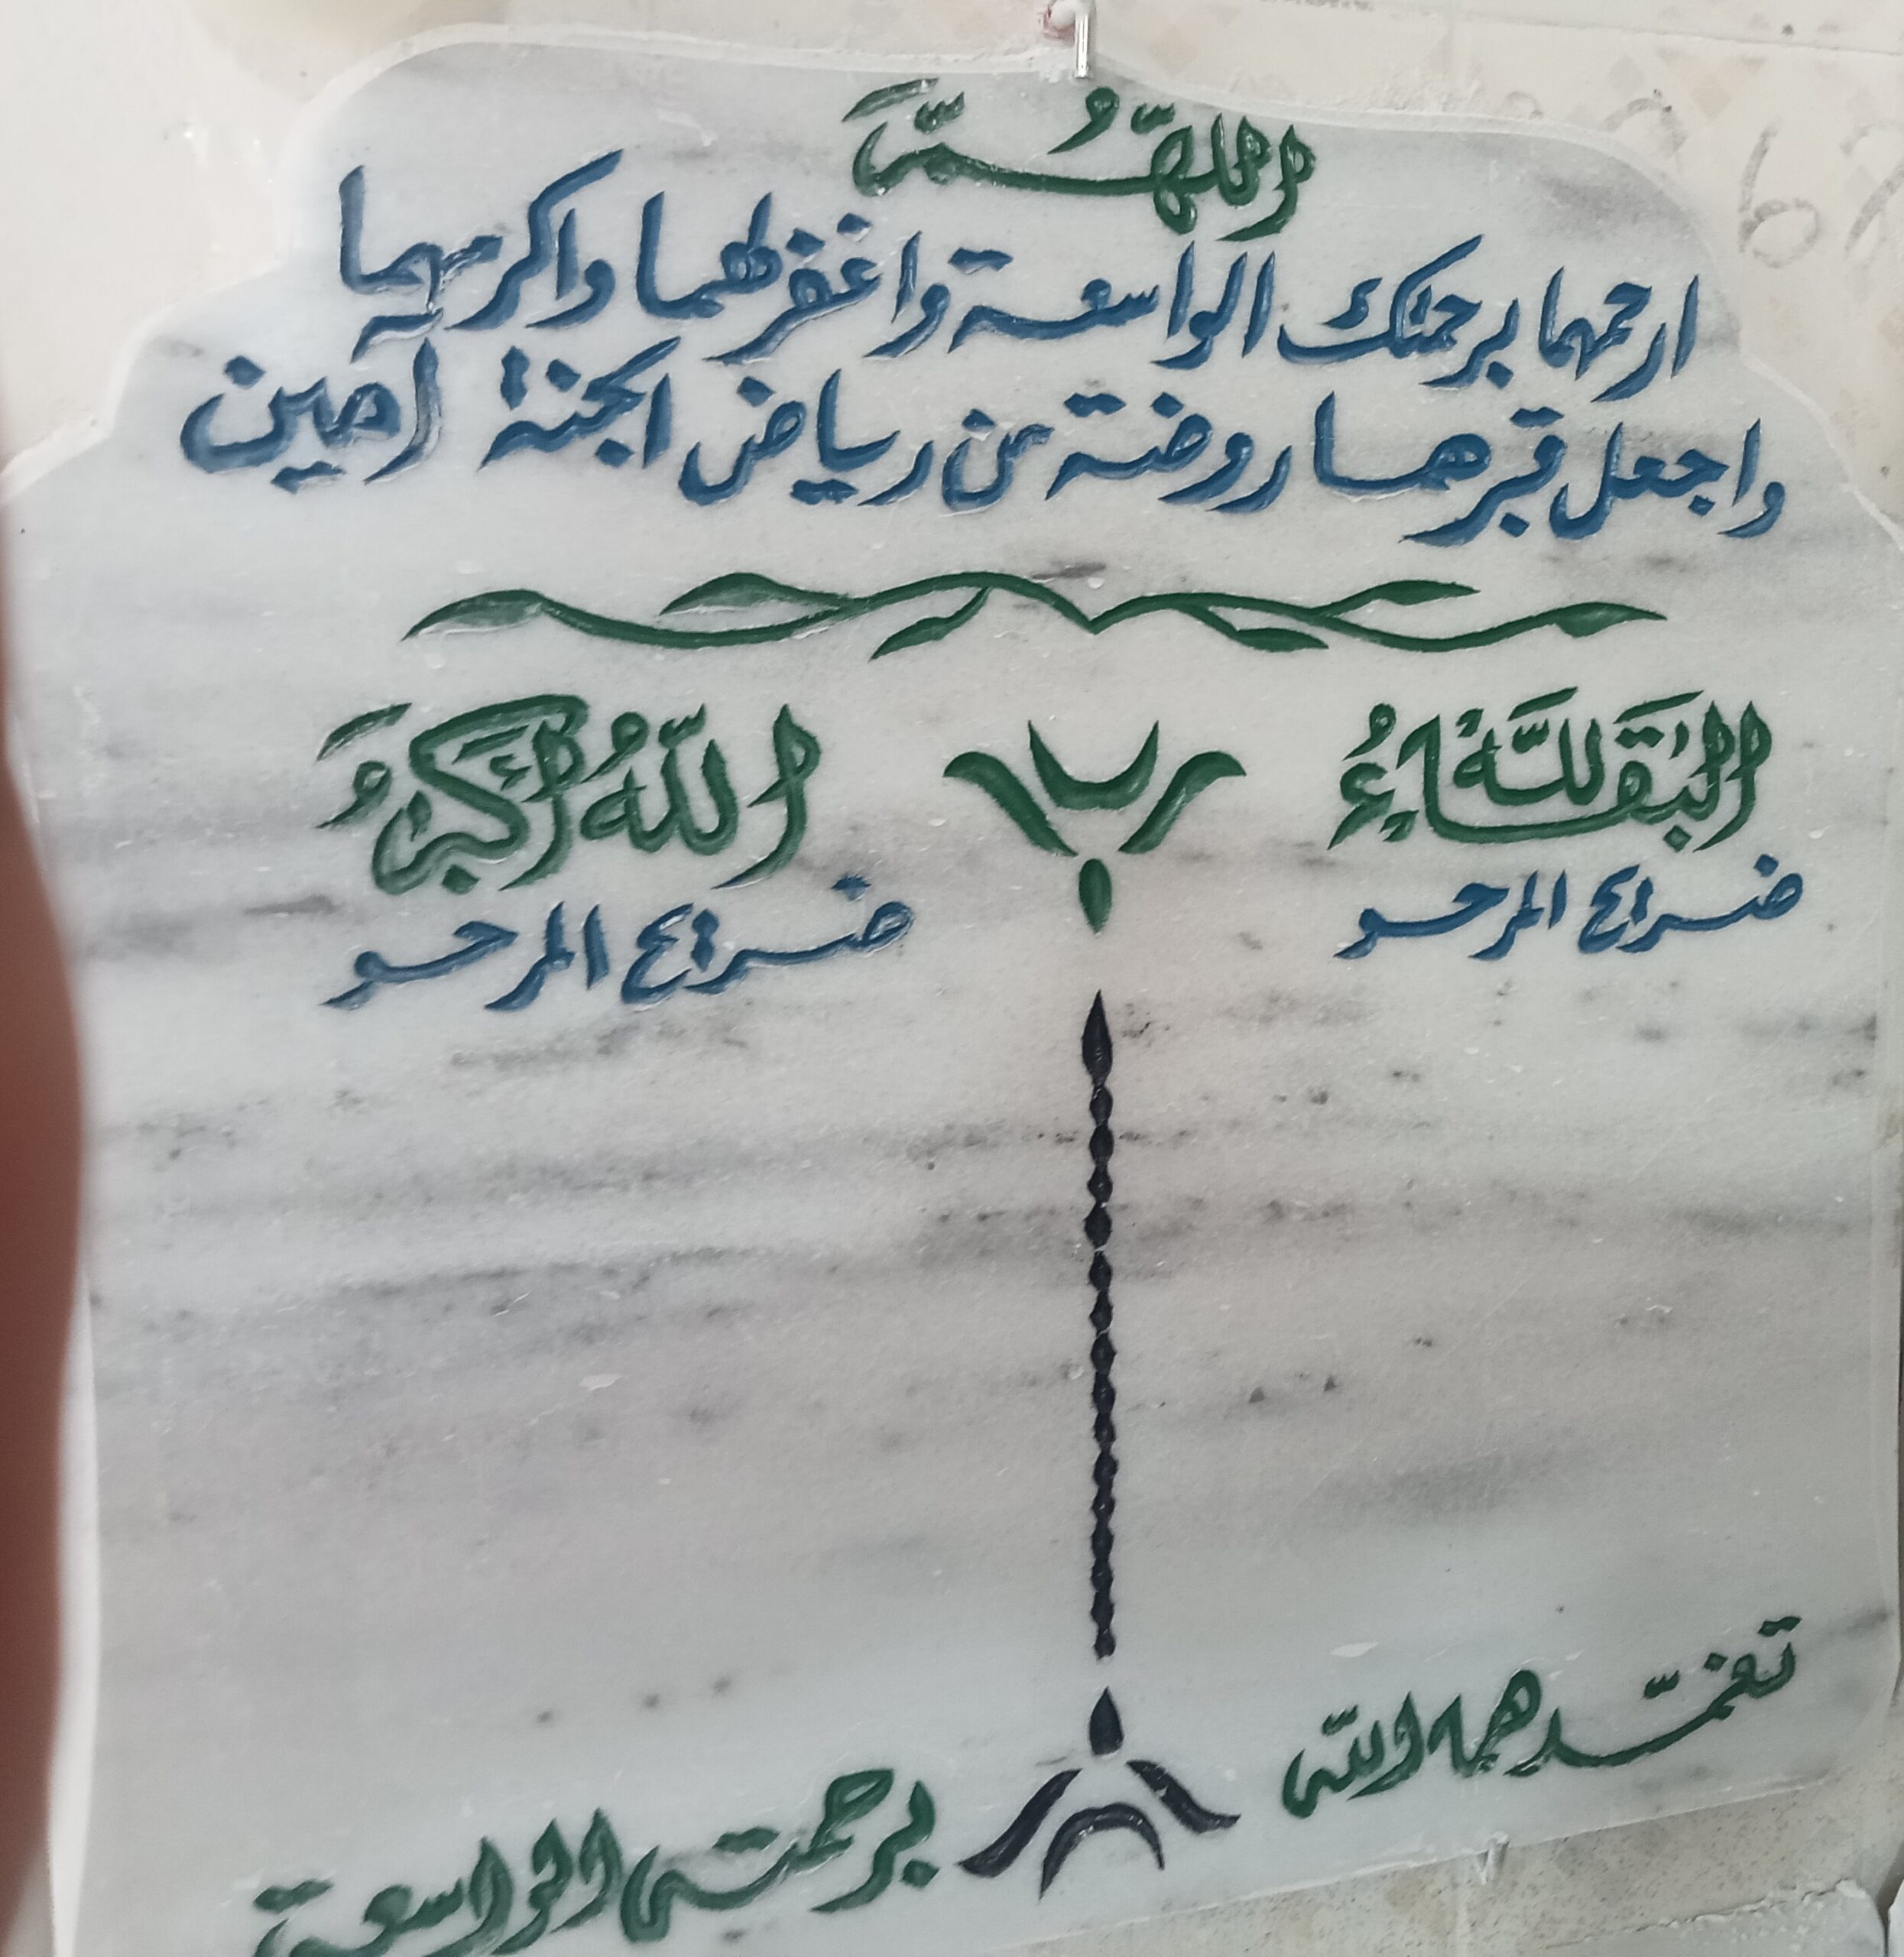 اللهُمَّ
ارحمهما برحمتك الواسعة واغفر لهما واكرمهما
واجعل قبرهما روضة من رياض الجنة آمين
البَقَاءُ للَّهِ
اللَّهُ أَكْبَرُ
ضريح المرحو
ضريح المرحو
تغمّدهما اللّه
برحمته الواسعة